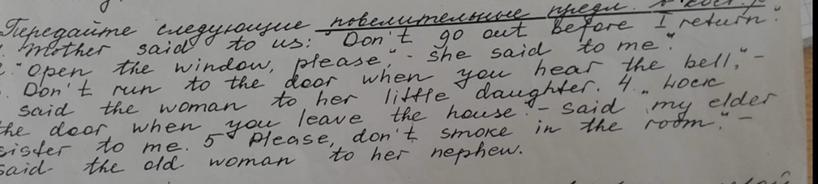 Передайте следующие повелительные предл. в
Mother said to us: "Don't go out before I return".
"Open the window, please," - she said to me".
Don't run to the door when you hear the bell," -
said the woman to her little daughter. 4 „ Lock
the door when you leave the house" - said my elder
sister to me. 5 Please, don't smoke in the room". -
said the old woman to her nephew.